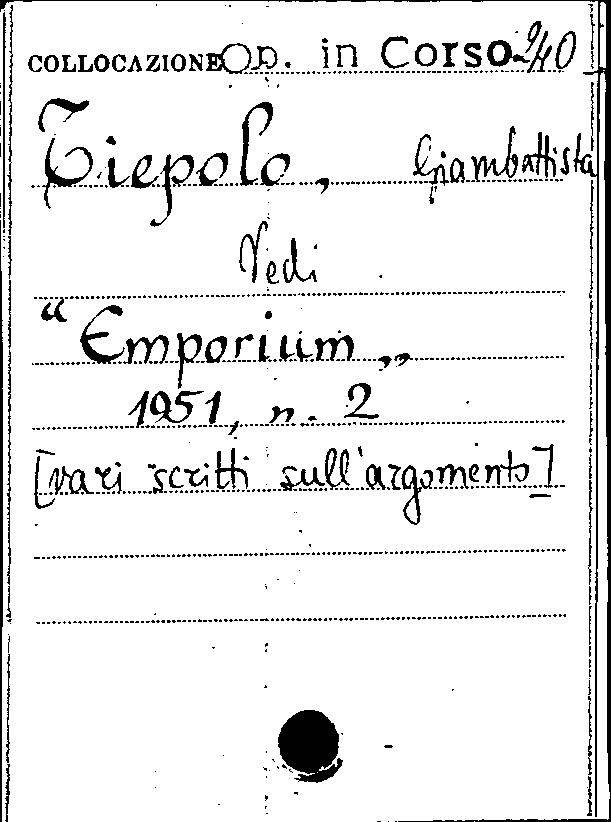 COLLOCAZIONE Op. in Corso 240
Tiepolo, Giambattista
Vedi
"Emporium„
1951, n. 2
[vari scritti sull'argomento]